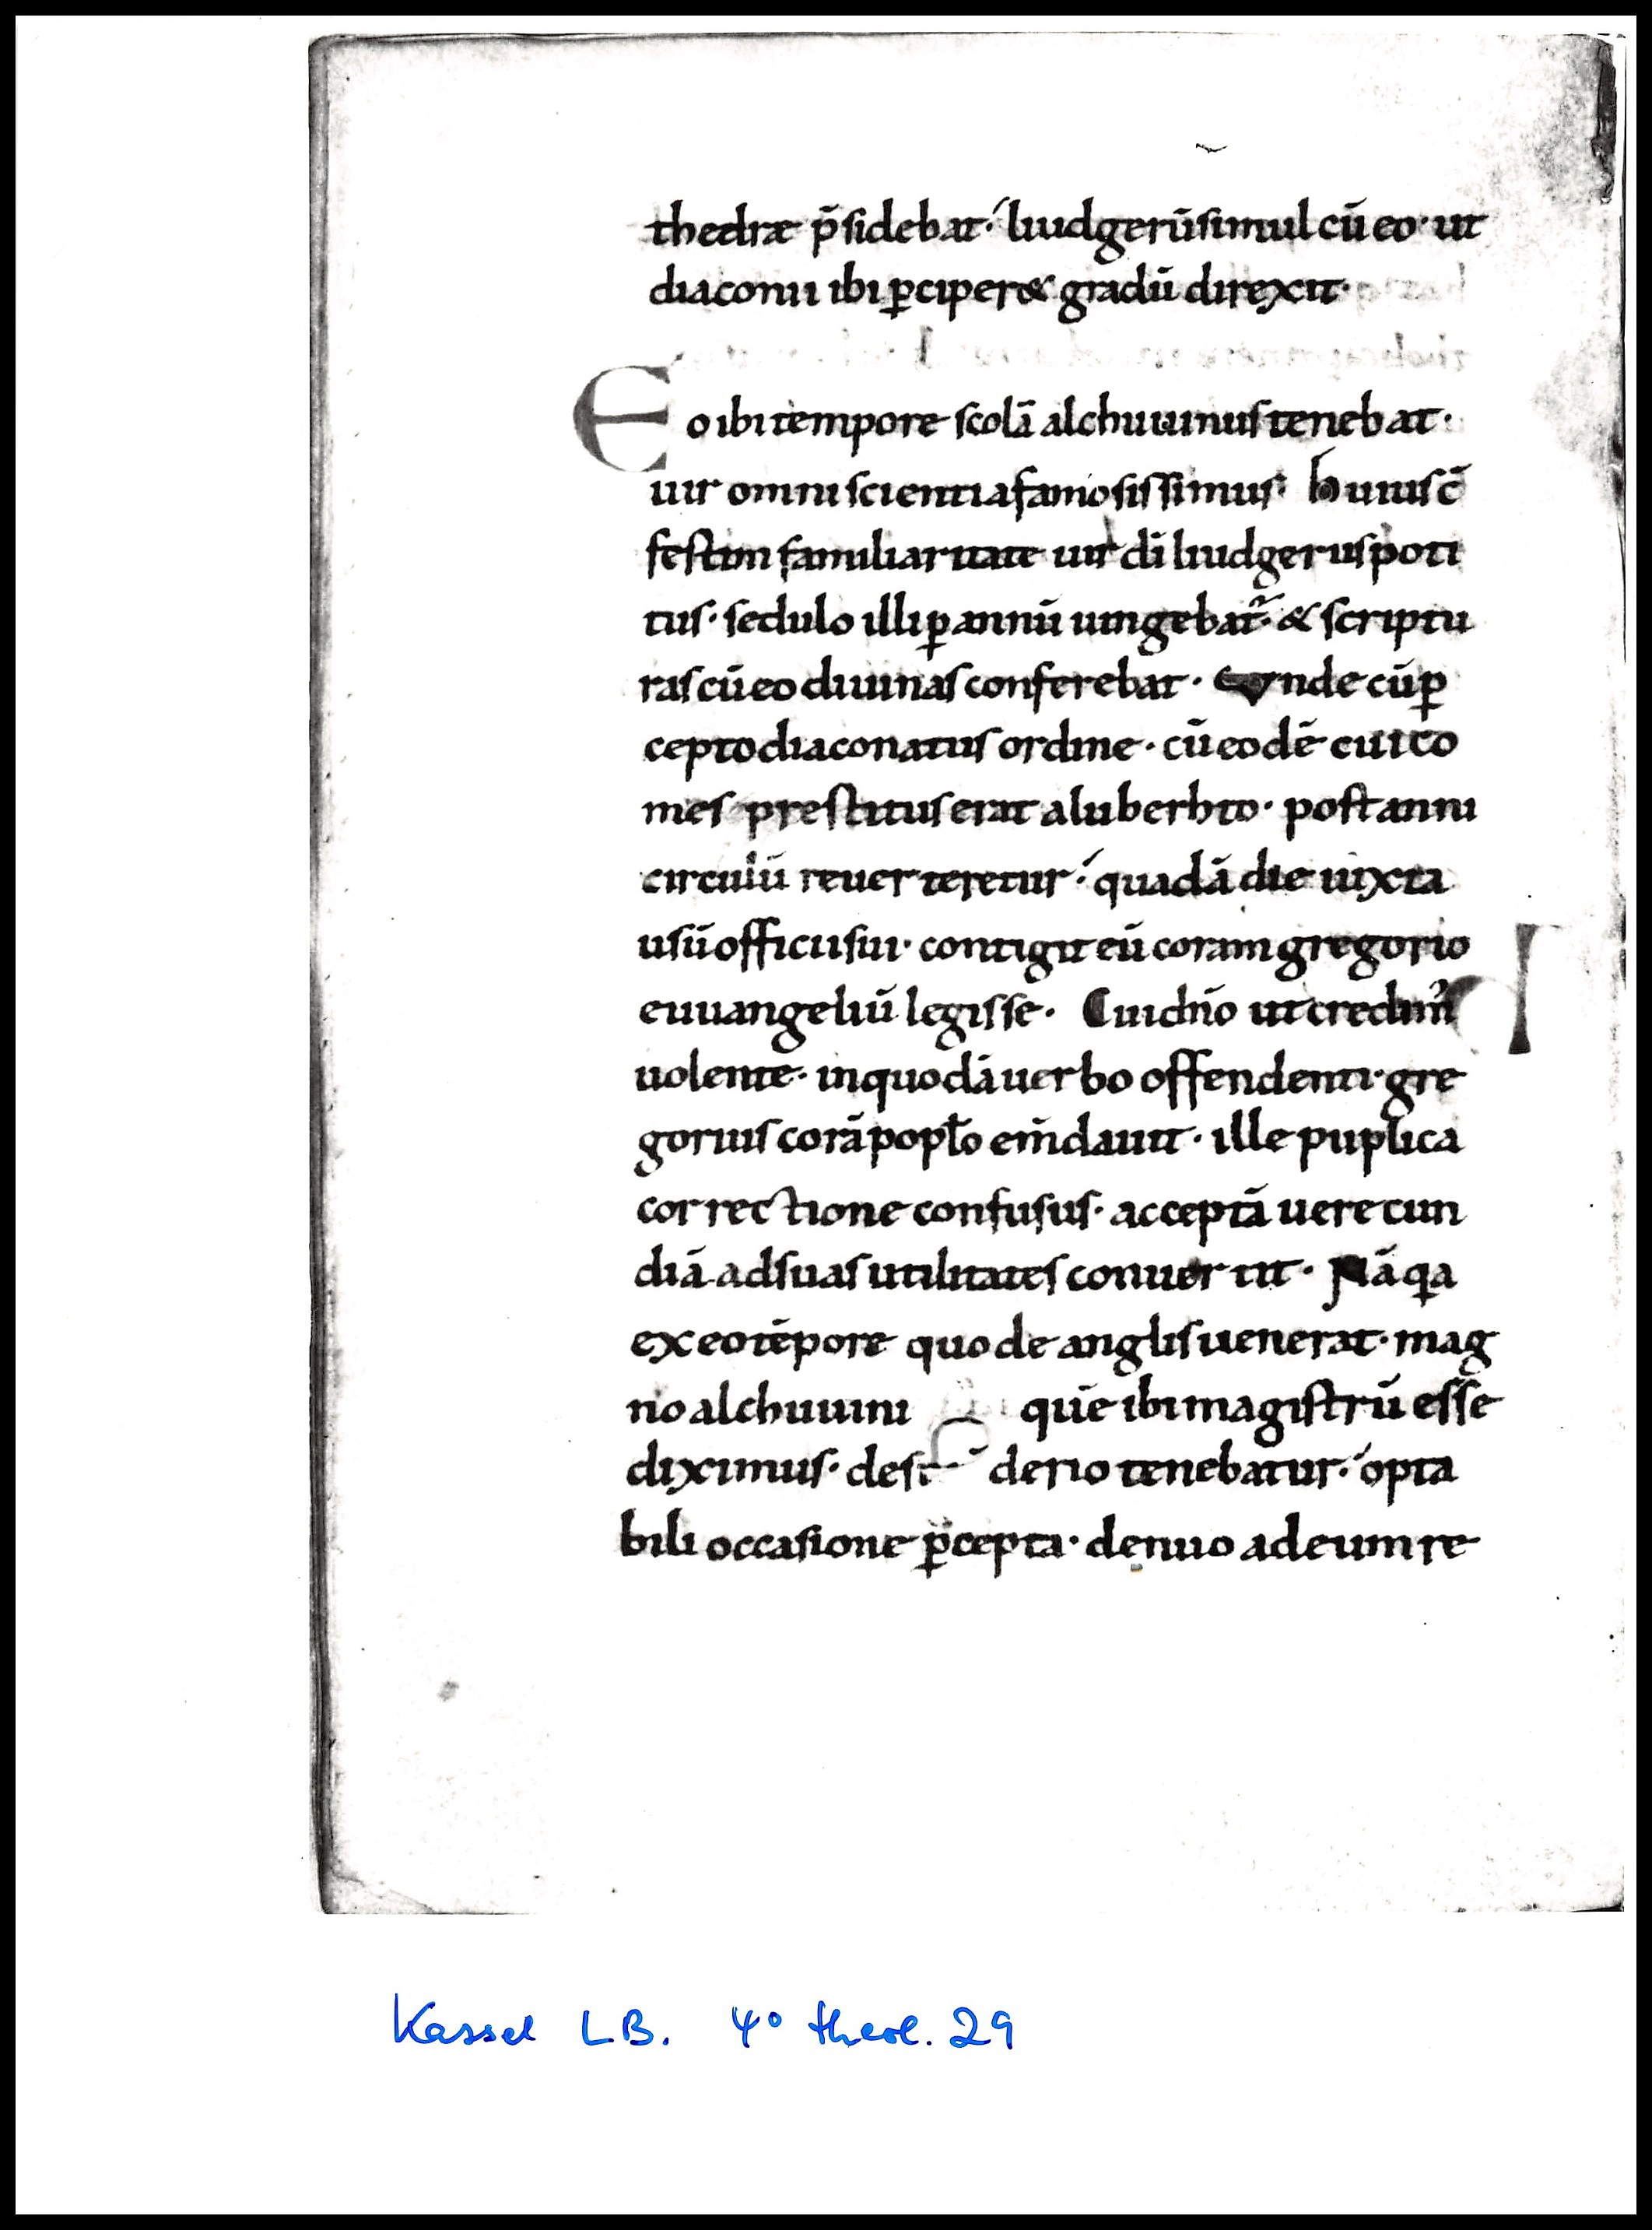 thedræ p̄sidebat·́ liudgerū simul cū eo· ut
diaconii ibi ꝑciper& gradū direxit·
Eo ibi tempore scolā alchuuinus tenebat·
uir omni scientia famosissimus· huius c̄
festim familiaritate uir dī liudgerus poti
tus· sedulo illi ꝑ annū iungebat᷑· & scriptu
ras cū eo diuinas conferebat· Unde cū ꝑ
cepto diaconatus ordine· cū eodē cui co
mes prestitus erat aluberhto· post anni
circulū reuerteretur·́ quadā die iuxta
usū officii sui· contigit eū coram gregorio
euuangeliū legisse· Cui dn̄o ut credim᷒
uolente· in quodā uerbo offendenti· gre
gorius corā popl̄o em̄dauit· ille puplica
correctione confusus· acceptā uerecun
diā ad suas utilitates conuertit· Nā qa
ex eo tēpore quo de anglis uenerat· mag
no alchuuini quē ibi magistrū esse
diximus· desi derio tenebatur·́ opta
bili occasione ꝑcepta· denuo ad eum re
Kassel LB. 4° theol. 29